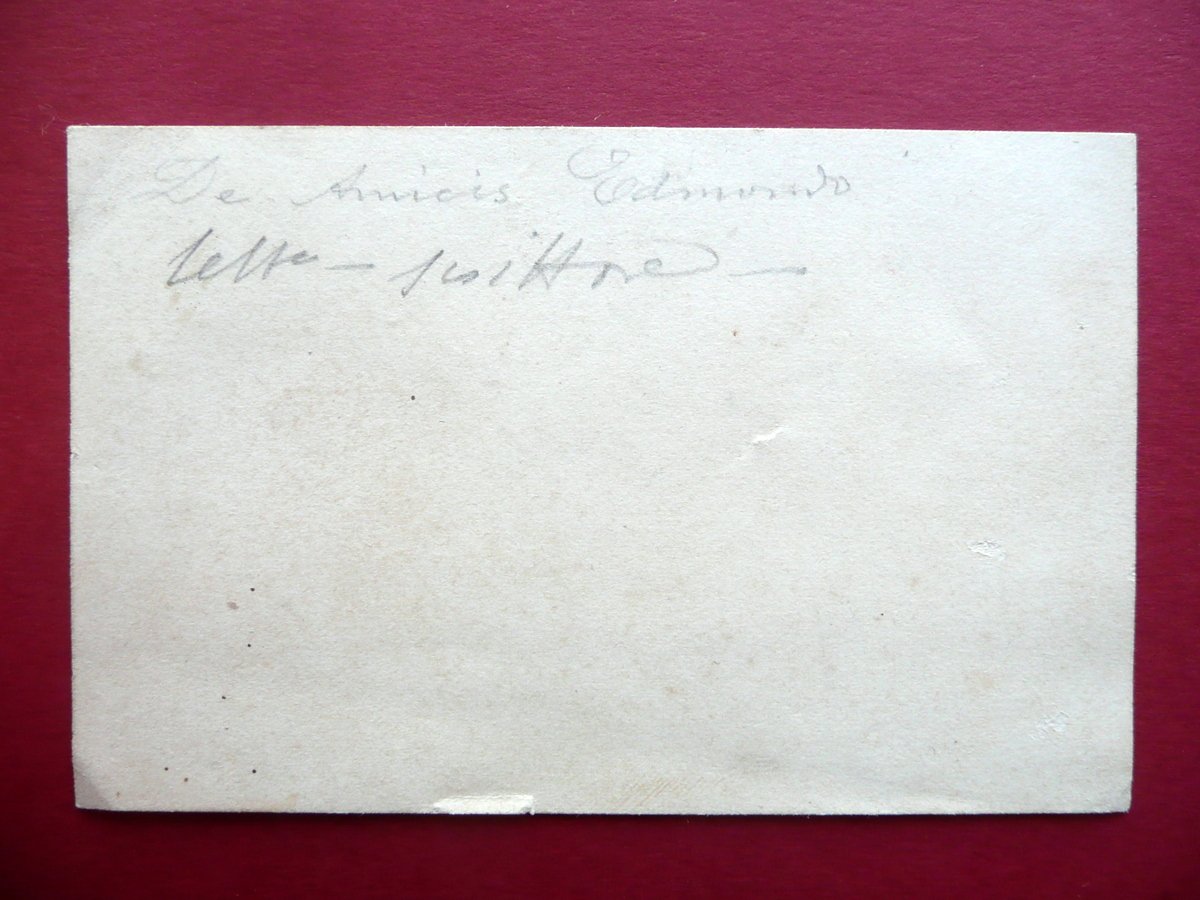 De Amicis Edmondo
lett.re — scrittore —